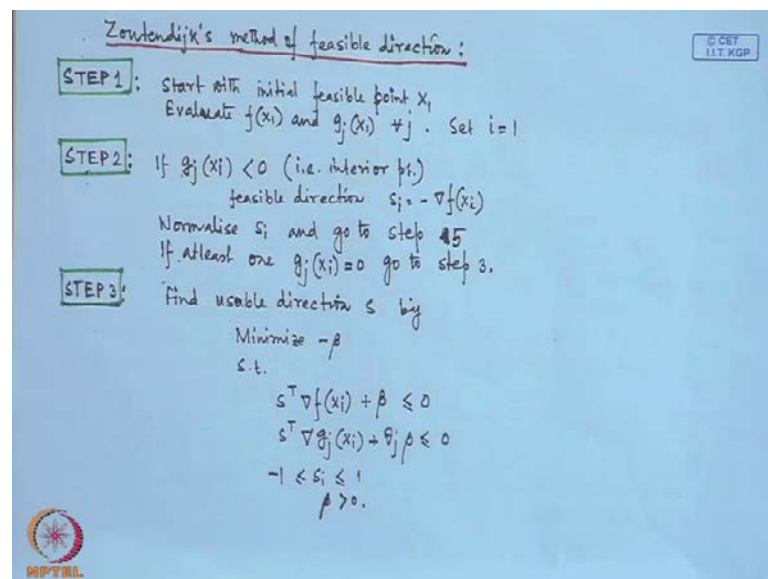 Zoutendijk's method of feasible direction :
© CET
I.I.T. KGP
STEP 1 : Start with initial feasible point X₁
Evaluate f(x₁) and gⱼ(x₁) ∀j . Set i = 1
STEP 2 : If gⱼ(xᵢ) < 0 (i.e. interior pt.)
feasible direction sᵢ = - ∇f(xᵢ)
Normalise sᵢ and go to step 5
If atleast one gⱼ(xᵢ) = 0 go to step 3.
STEP 3 : Find usable direction s by
Minimize -β
s.t.
sᵀ ∇f(xᵢ) + β ≤ 0
sᵀ ∇gⱼ(xᵢ) + θⱼ β ≤ 0
-1 ≤ sᵢ ≤ 1
β > 0.
NPTEL